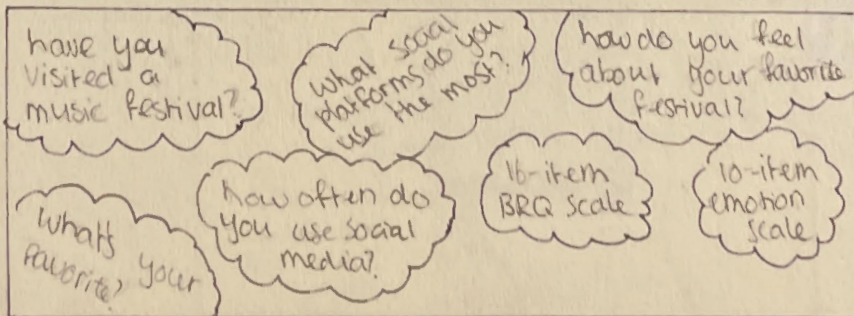 have you
visited a
music festival?
what social
platforms do you
use the most?
how do you feel
about your favorite
festival?
what's your
favorite?
how often do
you use social
media?
16-item
BRQ scale
10-item
emotion
scale